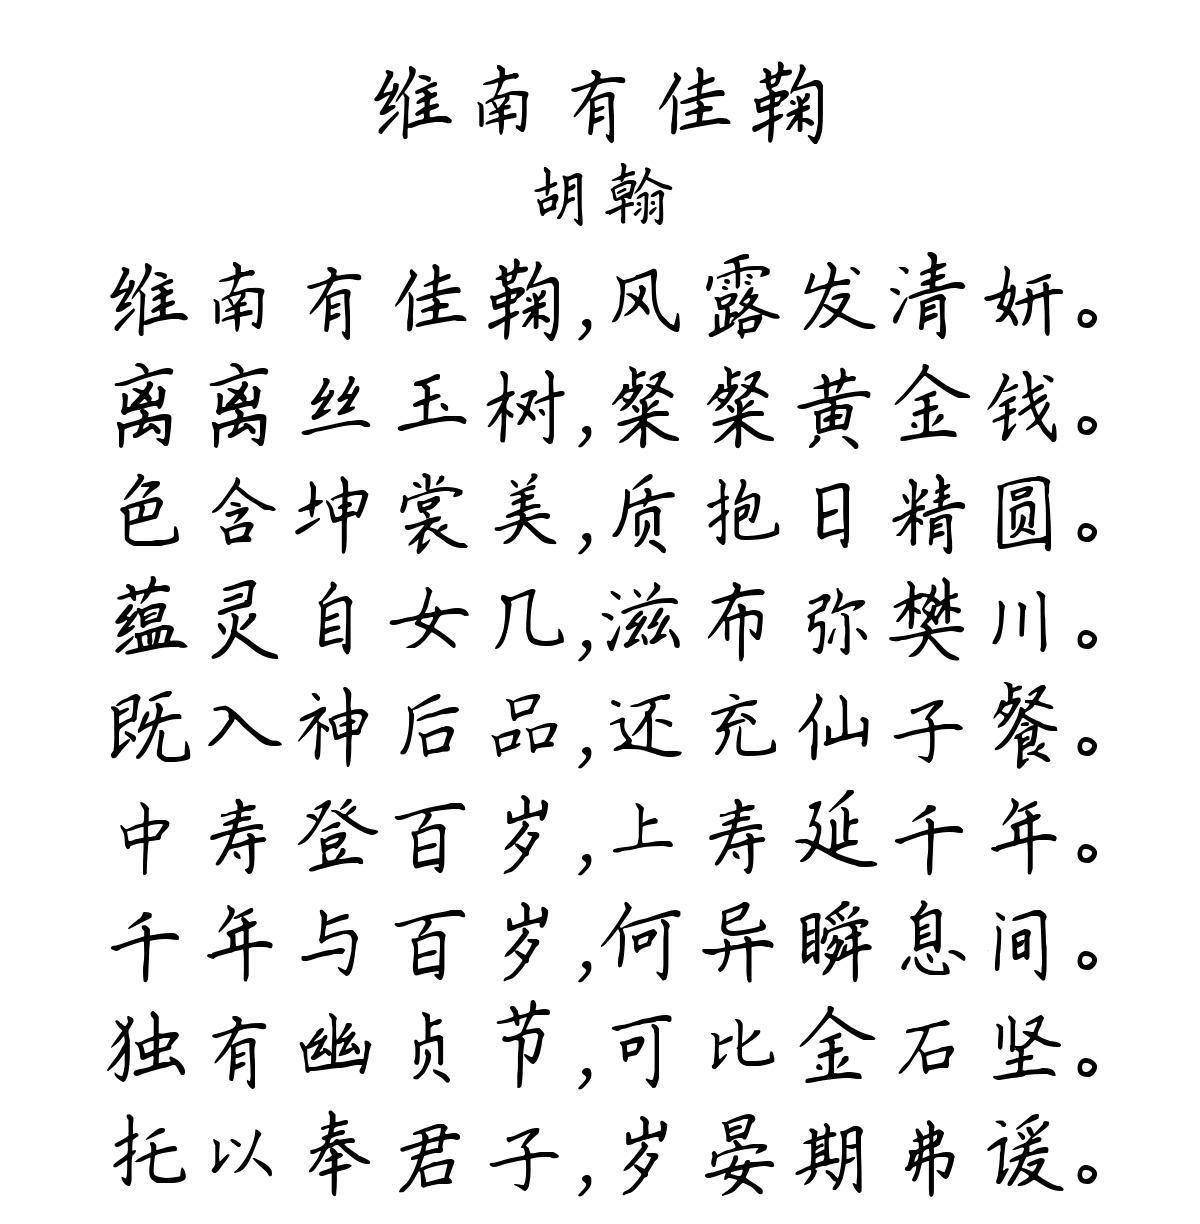 维南有佳鞠
胡翰
维南有佳鞠,风露发清妍。
离离丝玉树,粲粲黄金钱。
色含坤裳美,质抱日精圆。
蕴灵自女几,滋布弥樊川。
既入神后品,还充仙子餐。
中寿登百岁,上寿延千年。
千年与百岁,何异瞬息间。
独有幽贞节,可比金石坚。
托以奉君子,岁晏期弗谖。